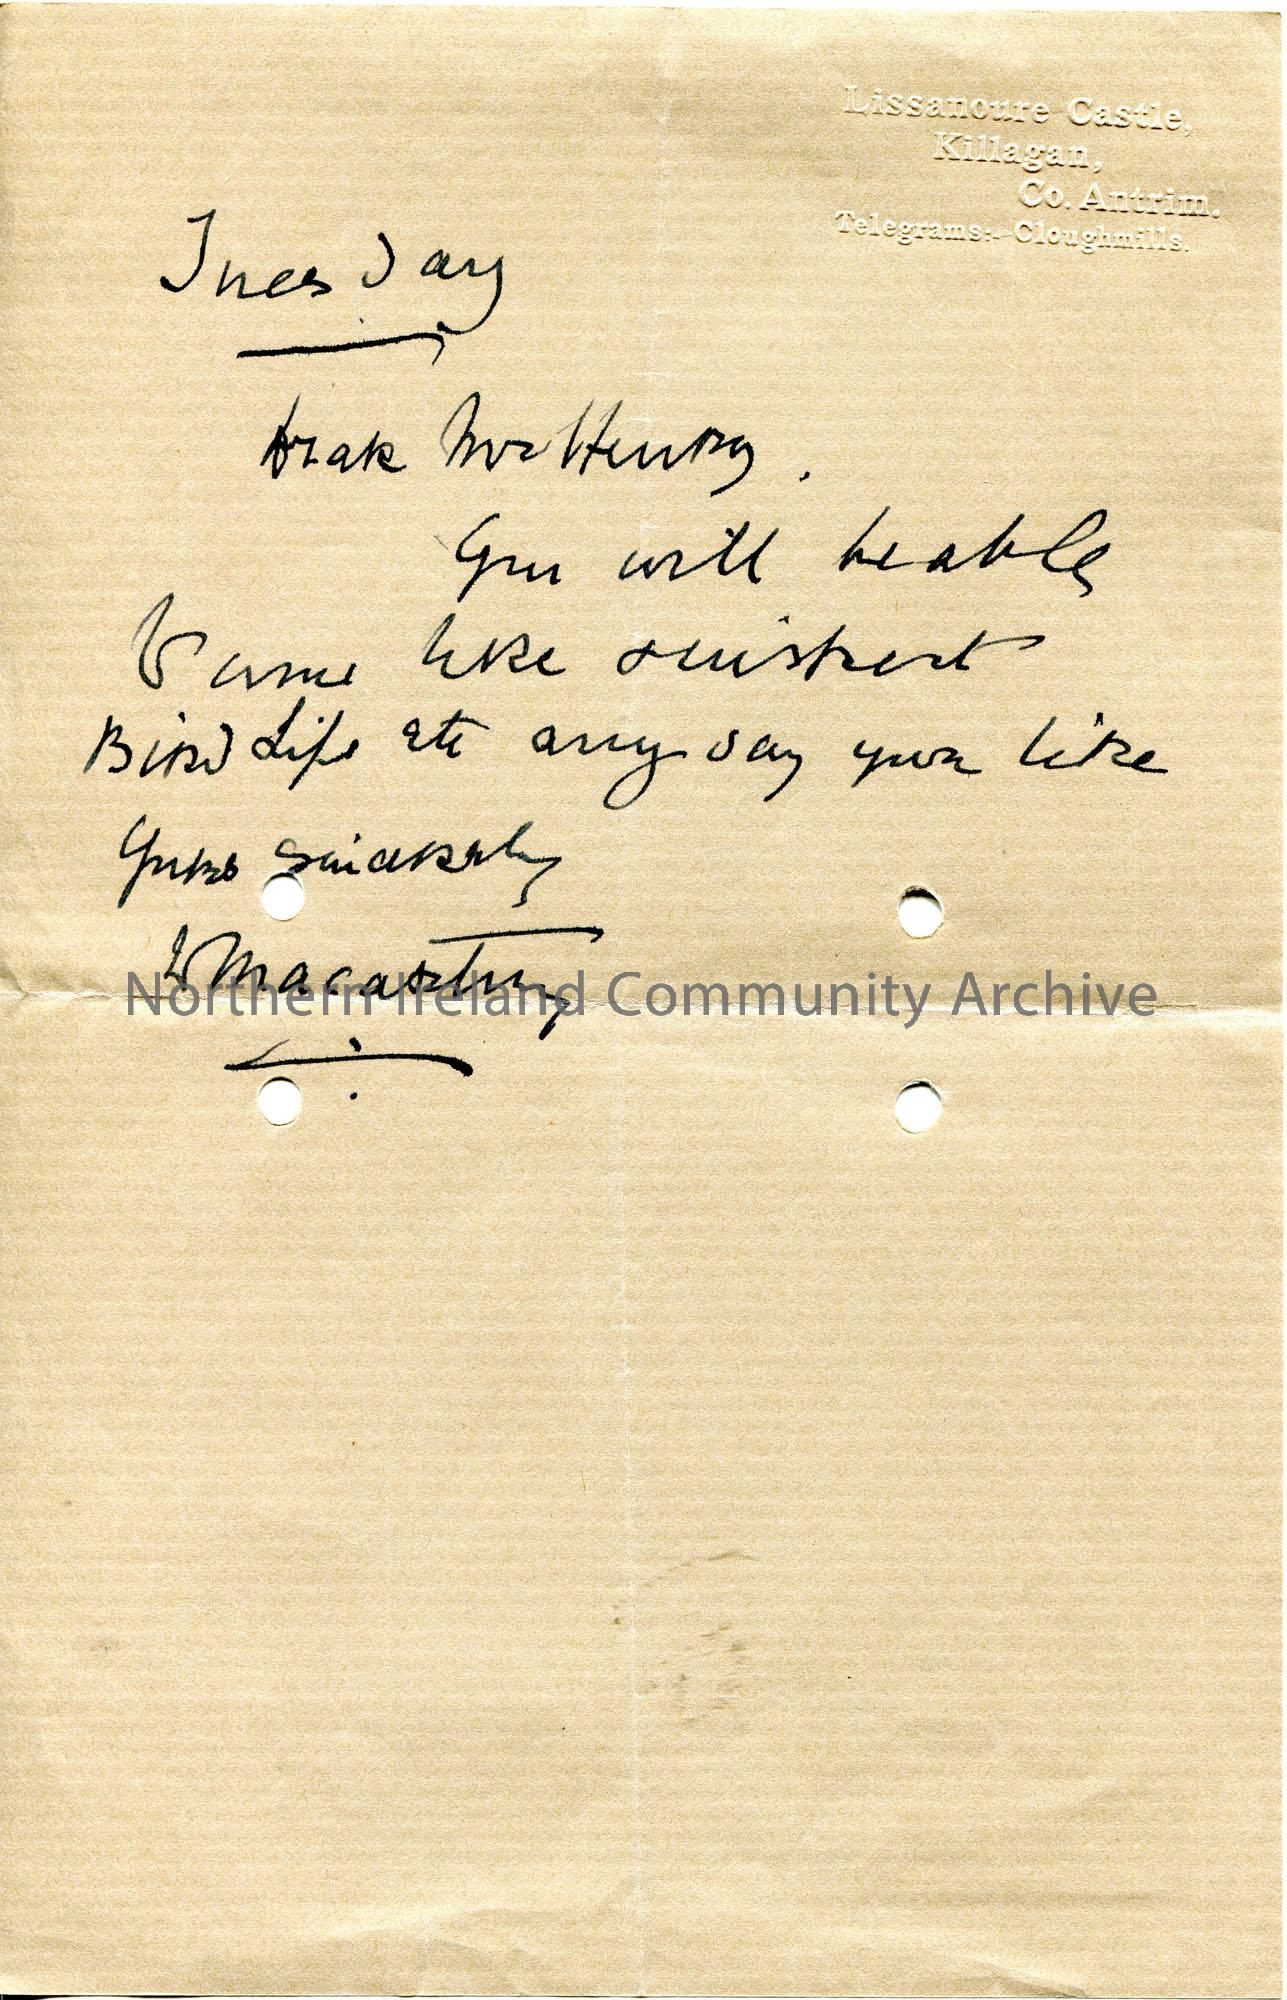 Lissanoure Castle,
Killagan,
Co. Antrim.
Telegrams:- Cloughmills.
Tuesday
Dear Mr Henry.
You will be able
to come here &
Bird Life etc any day you like
Yours sincerely
Macartney
Northern Ireland Community Archive